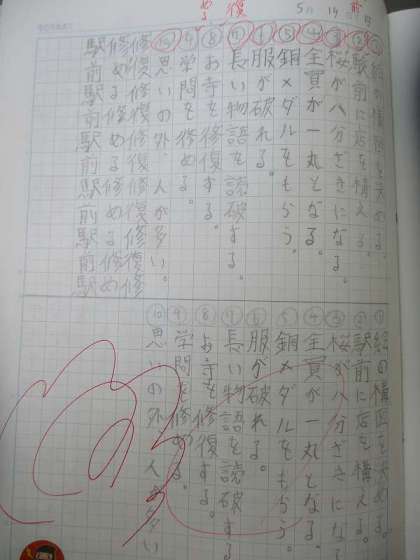 5 19
前
復
める
①絵の構図を決める。
②駅前に店を構える。
③桜が八分ざきになる。
④全員が一丸となる。
⑤銅メダルをもらう。
⑥服が破れる。
⑦長い物語を読破する。
⑧お寺を修復する。
⑨学問を修める。
⑩思いの外、人が多い。
修復修復修復修復修復修
修める修める修める修め
駅前駅前駅前駅前駅前駅
①絵の構図を決める。
②駅前に店を構える。
③桜が八分ざきになる。
④全員が一丸となる。
⑤銅メダルをもらう。
⑥服が破れる。
⑦長い物語を読破する
⑧お寺を修復する。
⑨学問を修める。
⑩思いの外、人が多い